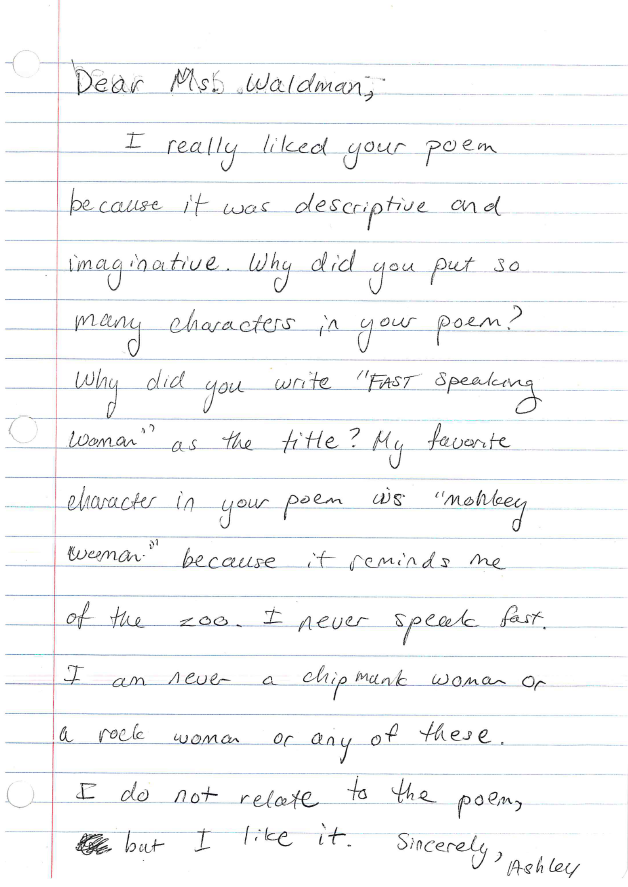 Dear Ms. Waldman,
I really liked your poem
because it was descriptive and
imaginative. Why did you put so
many characters in your poem?
Why did you write "FAST Speaking
woman" as the title? My favorite
character in your poem is "monkey
woman" because it reminds me
of the zoo. I never speak fast.
I am never a chipmunk woman or
a rock woman or any of these.
I do not relate to the poem,
but I like it. Sincerely,
Ashley